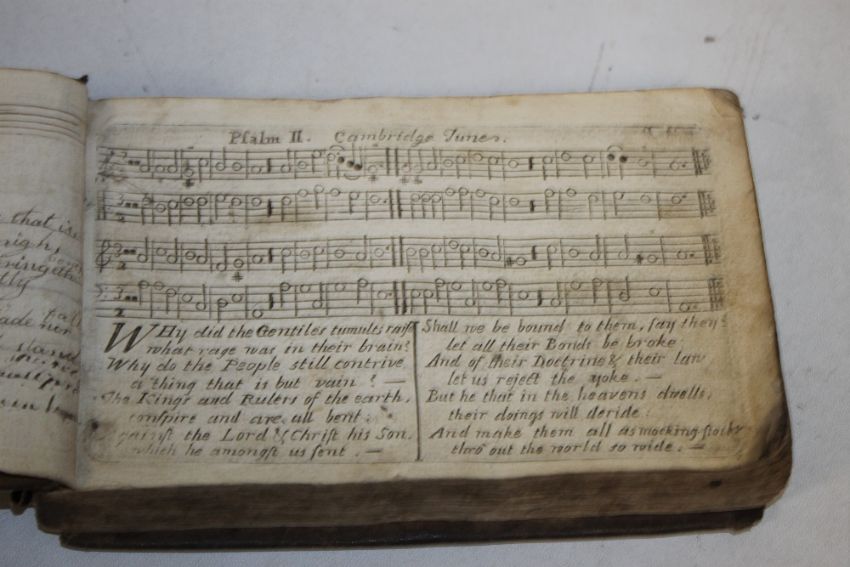 Psalm II. Cambridge Tune.
WHy did the Gentiles tumults raise
what rage was in their brain?
Why do the People still contrive
a thing that is but vain? —
The Kings and Rulers of the earth,
conspire and are all bent:
against the Lord & Christ his Son,
which he amongst us sent. —
Shall we be bound to them, say they?
let all their Bonds be broke
And of their Doctrine & their law
let us reject the yoke. —
But he that in the heavens dwells,
their doings will deride:
And make them all as mocking-stocks
thro' out the world so wide. —
that is